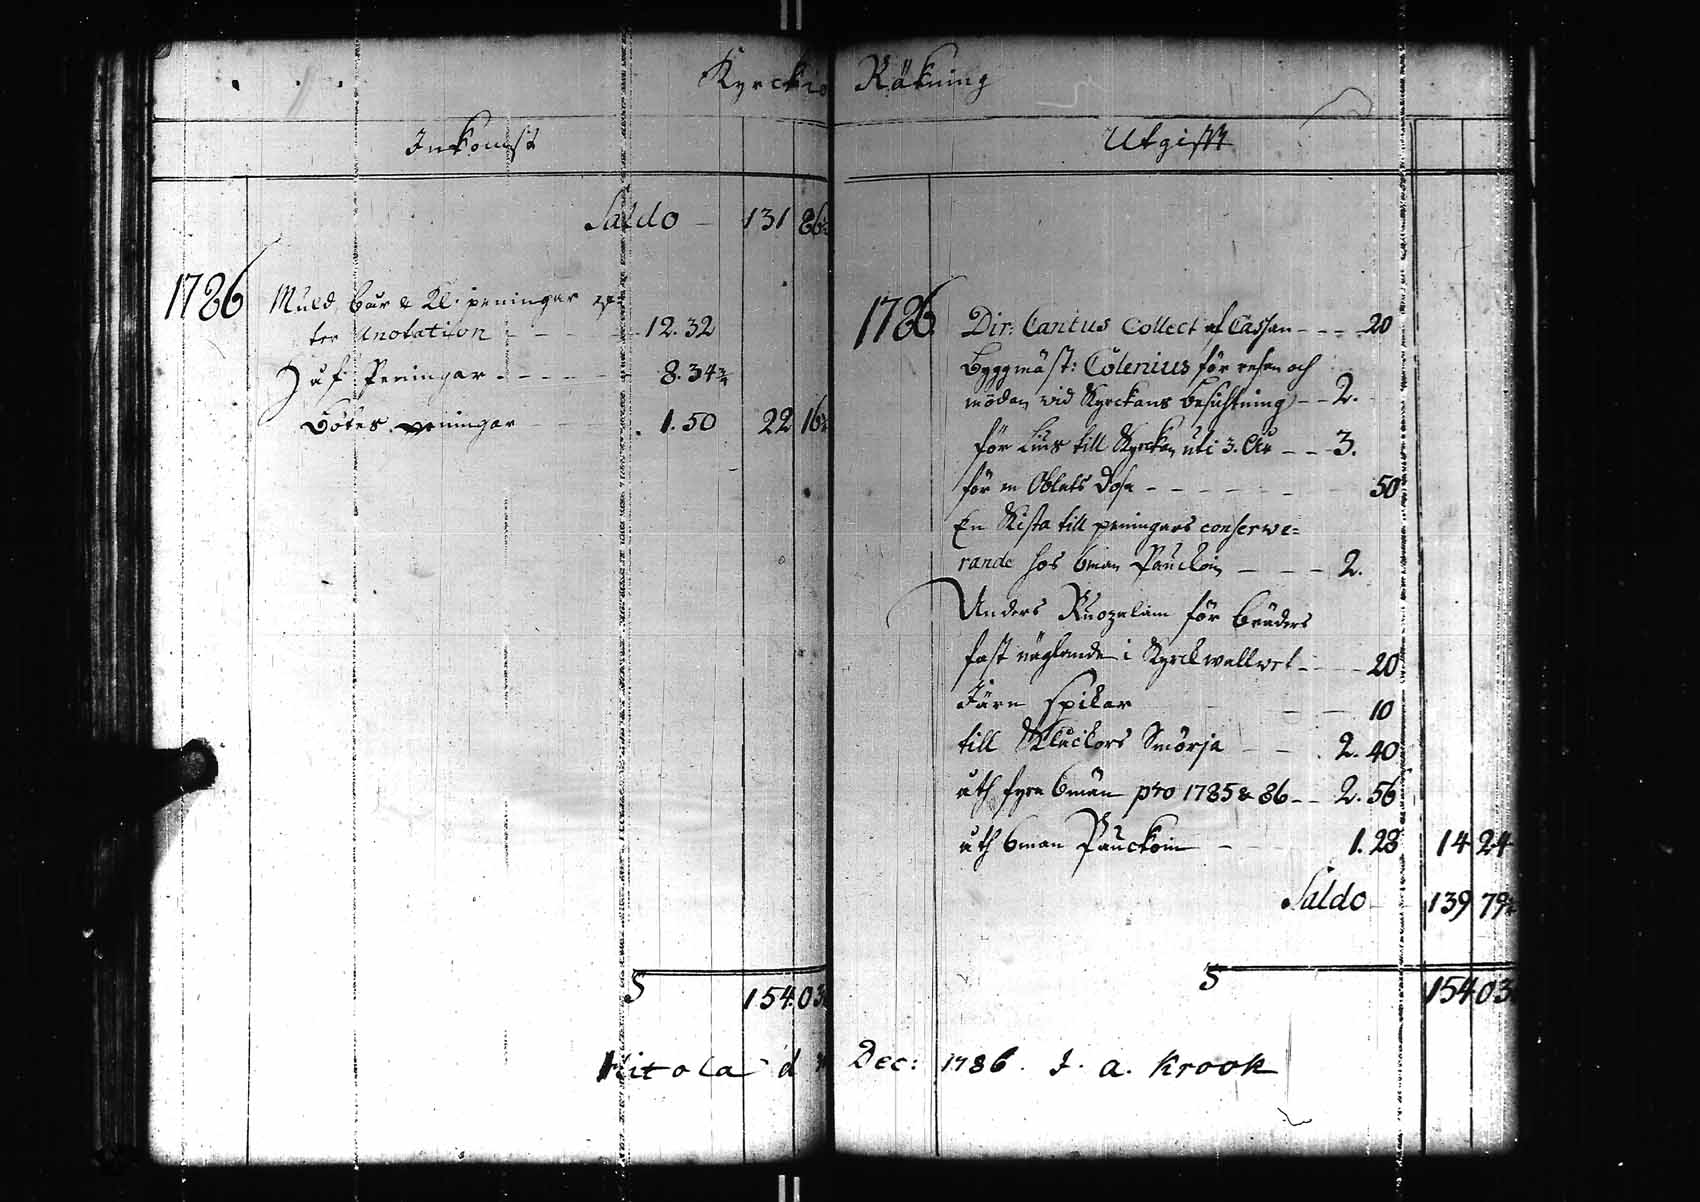 Kyrckio Räkning
Inkomst
Saldo — 131 86½
1786 Muld, bår & Kl: peningar ef-
ter Anotation - - - - 12. 32
Håf Peningar - - - - - 8. 34¾
Bötes peningar - - - 1. 50 22 16¾
S 154. 03
Utgifft
1786 Dir: Cantus Collect af Cassan - - - 20
Byggmäst: Colenius för resan och
mödan vid Kyrckans besichtning - - 2.
för Lius till Kyrckan uti 3. År - - - 3.
för en Oblats Dosa - - - - - - 50
En Kista till peningars conserwe=
rande hos 6man Pauckoin - - - - 2.
Anders Ruozalain för bräders
fast näglande i Kyrckwallwet - - - 20
Järn spikar - - - 10
till Kluckors Smörja - - - 2. 40
åth fyra 6män pro 1785 & 86 - - 2. 56
åth 6man Pauckoin - - - 1. 28 14 24
Saldo - - 139 79½
S 154 03
Hitola d Dec: 1786. J. A. Krook